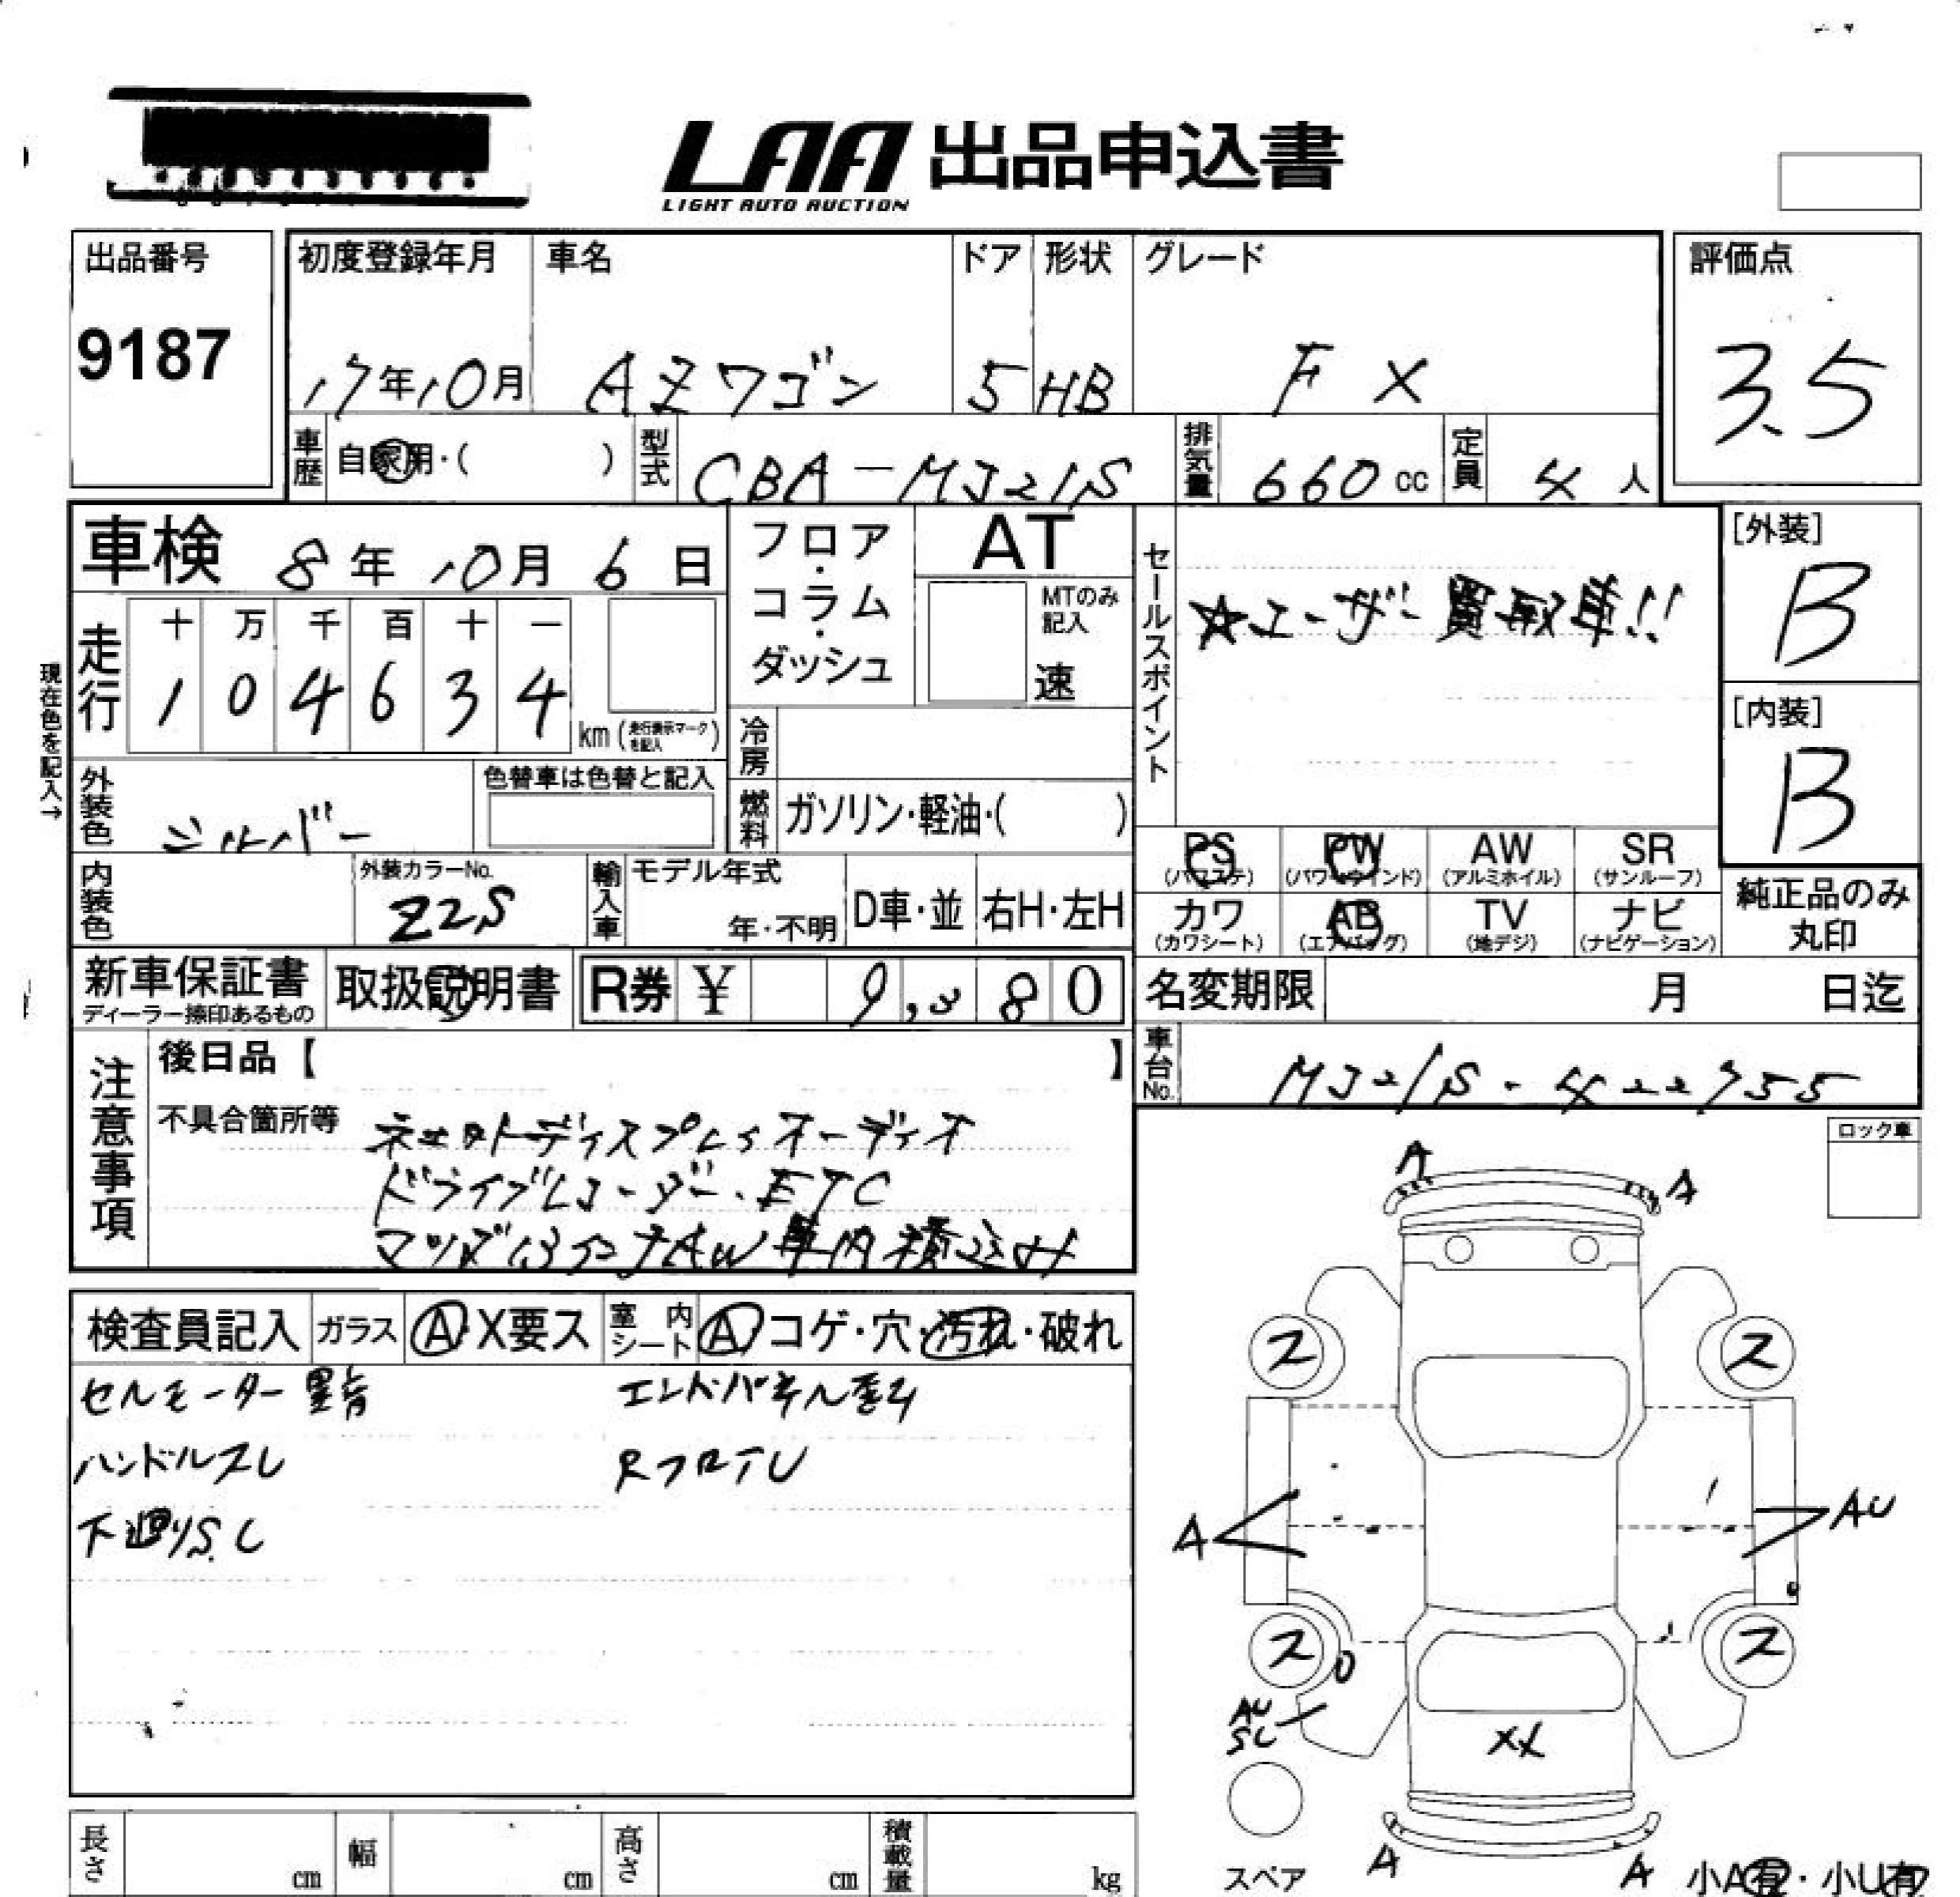 LAA 出品申込書
LIGHT AUTO AUCTION
出品番号
9187
初度登録年月
17年10月
車名
AZワゴン
ドア
5
形状
HB
グレード
FX
評価点
3.5
車歴
自家用・( )
型式
CBA-MJ21S
排気量
660 cc
定員
4 人
車検 8年10月6日
フロア・コラム・ダッシュ
AT
MTのみ記入
速
セールスポイント
★ユーザー買取車!!
[外装]
B
[内装]
B
現在色を記入→
走行
十 万 千 百 十 一
1 0 4 6 3 4
km (走行表示マークを記入)
冷房
外装色
シルバー
色替車は色替と記入
燃料
ガソリン・軽油・( )
PS (パワステ)
PW (パワーウインド)
AW (アルミホイル)
SR (サンルーフ)
カワ (カワシート)
AB (エアバッグ)
TV (地デジ)
ナビ (ナビゲーション)
純正品のみ丸印
内装色
外装カラーNo.
Z2S
輸入車
モデル年式
年・不明
D車・並
右H・左H
新車保証書
ディーラー捺印あるもの
取扱説明書
R券 ¥ 9,380
名変期限 月 日迄
車台No.
MJ21S-422755
注意事項
後日品【 】
不具合箇所等
ドライブレコーダー、ETC
AW車内積込み
ロック車
検査員記入
ガラス
A・X要ス
室内シート
A コゲ・穴・汚れ・破れ
セルモーター異音
エンドパネル歪み
ハンドルスレ
下廻りS.C
A
A
ス
ス
A
AU
ス
ス
AU
SC
XX
A
A
スペア
小A有・小U有
長さ cm
幅 cm
高さ cm
積載量 kg